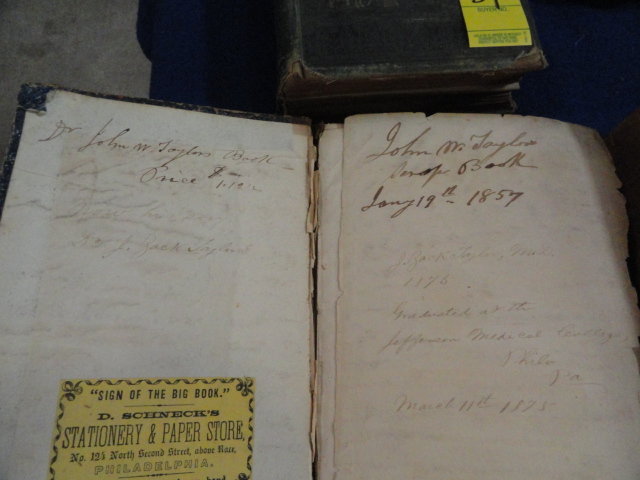 BUYER NO.
Dr John W. Taylors Book
Price $ 1.12½
By J. Zack Taylor
"SIGN OF THE BIG BOOK."
D. SCHNECK'S
STATIONERY & PAPER STORE,
No. 124 North Second Street, above Race,
PHILADELPHIA.
John W. Taylors
Book
Jany 19th 1857
J. Zack Taylor,
1875
Graduated at the
Jefferson Medical College
Phila
Pa
March 11th 1875